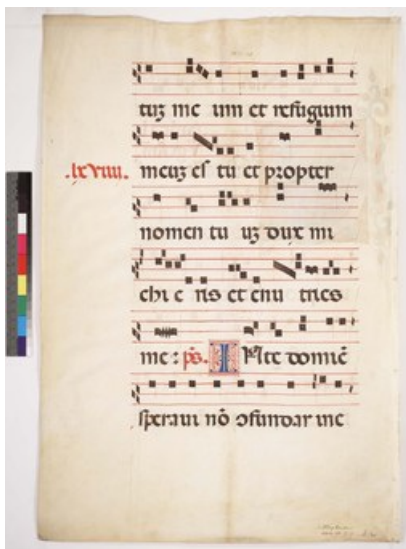 tuz me um et refugium
.lxviiii. meuz es tu et propter
nomen tu uz dux mi
chi e ris et enu tries
me : ps. INte domiē
speraui nō ↄfundar ine